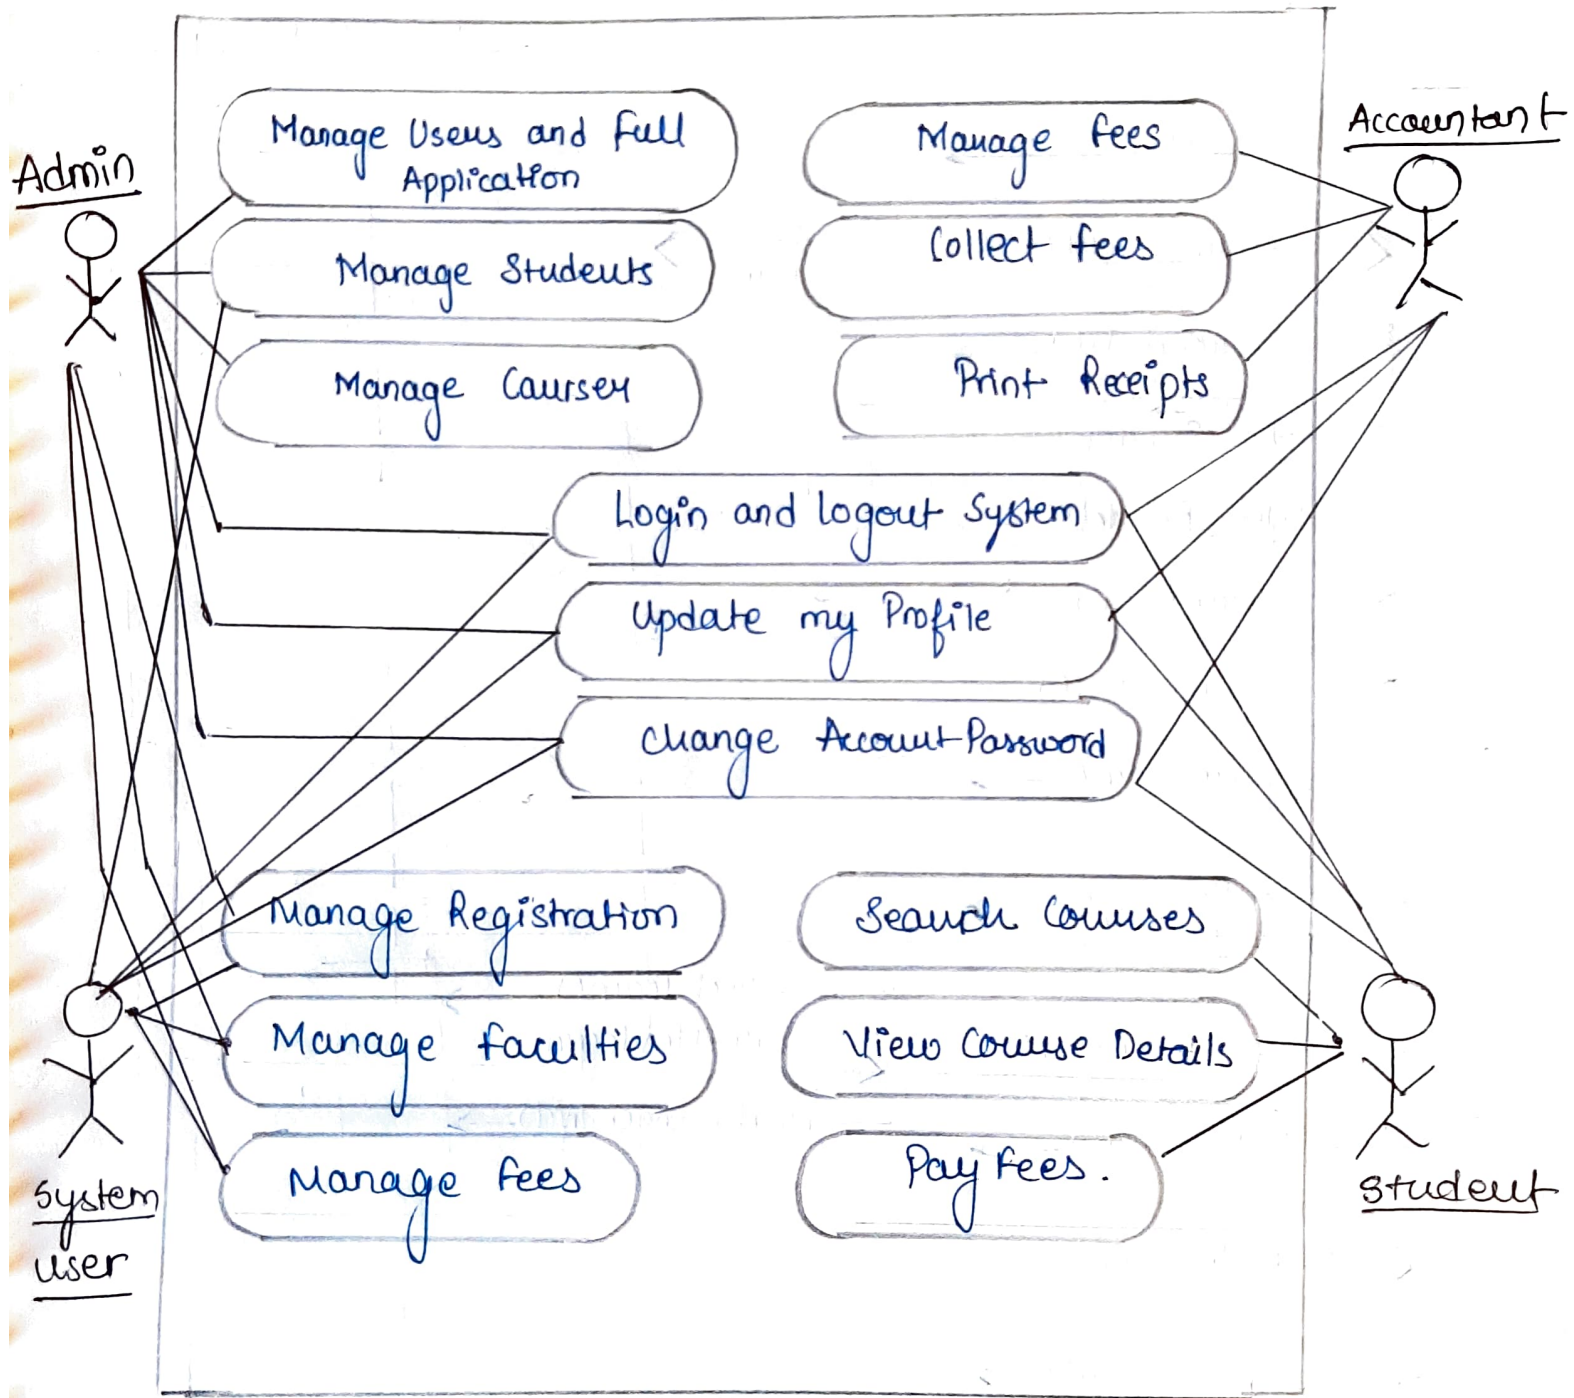 Admin
Manage Users and Full
Application
Manage Students
Manage Courses
Accountant
Manage fees
Collect fees
Print Receipts
Login and logout System
Update my Profile
Change Account Password
Manage Registration
Manage faculties
Manage fees
Search Courses
View Course Details
Pay Fees.
System
user
Student